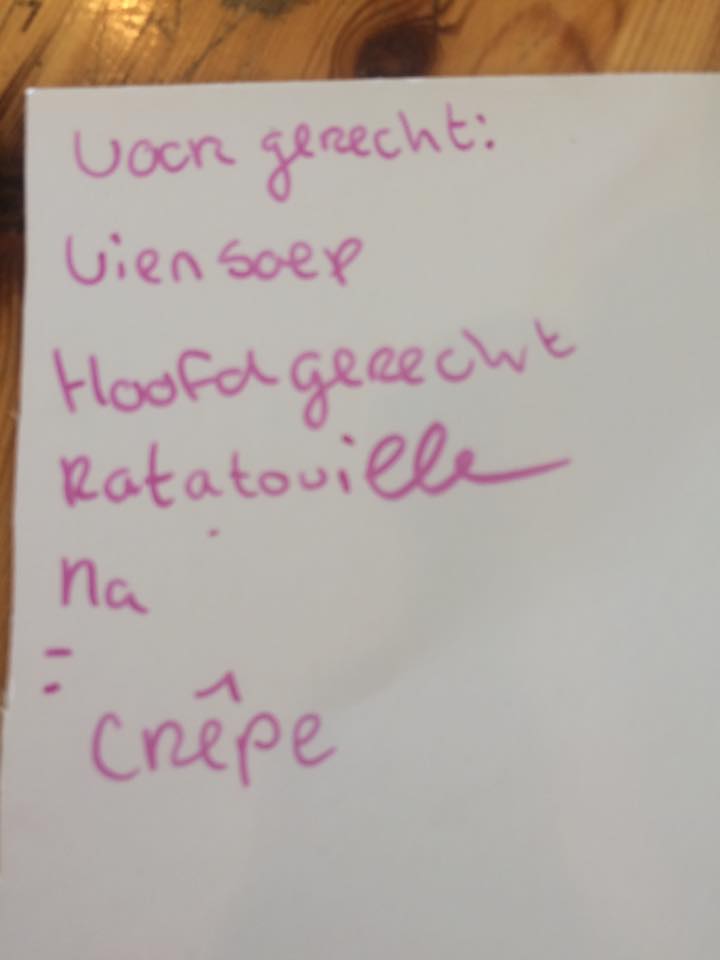 Voor gerecht:
Uien soep
Hoofdgerecht
Ratatouille
Na
-
- Crêpe